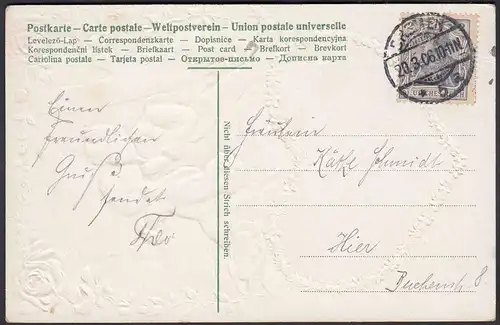 Postkarte – Carte postale – Weltpostverein – Union postale universelle
Levelező-Lap — Correspondenzkarte — Dopisnice — Karta korespondencyjna
Korespondenční listek — Briefkaart — Post card — Brefkort — Brevkort
Cartolina postale — Tarjeta postal — Открытое-письмо — Дописна карта
DEUTSCHES
20.3.06.10-11N.
Einen
freundlichen
Gruß
sendet
Theo
Nicht über diesen Strich schreiben.
Fräulein
Käthe Schmidt
Hier
8